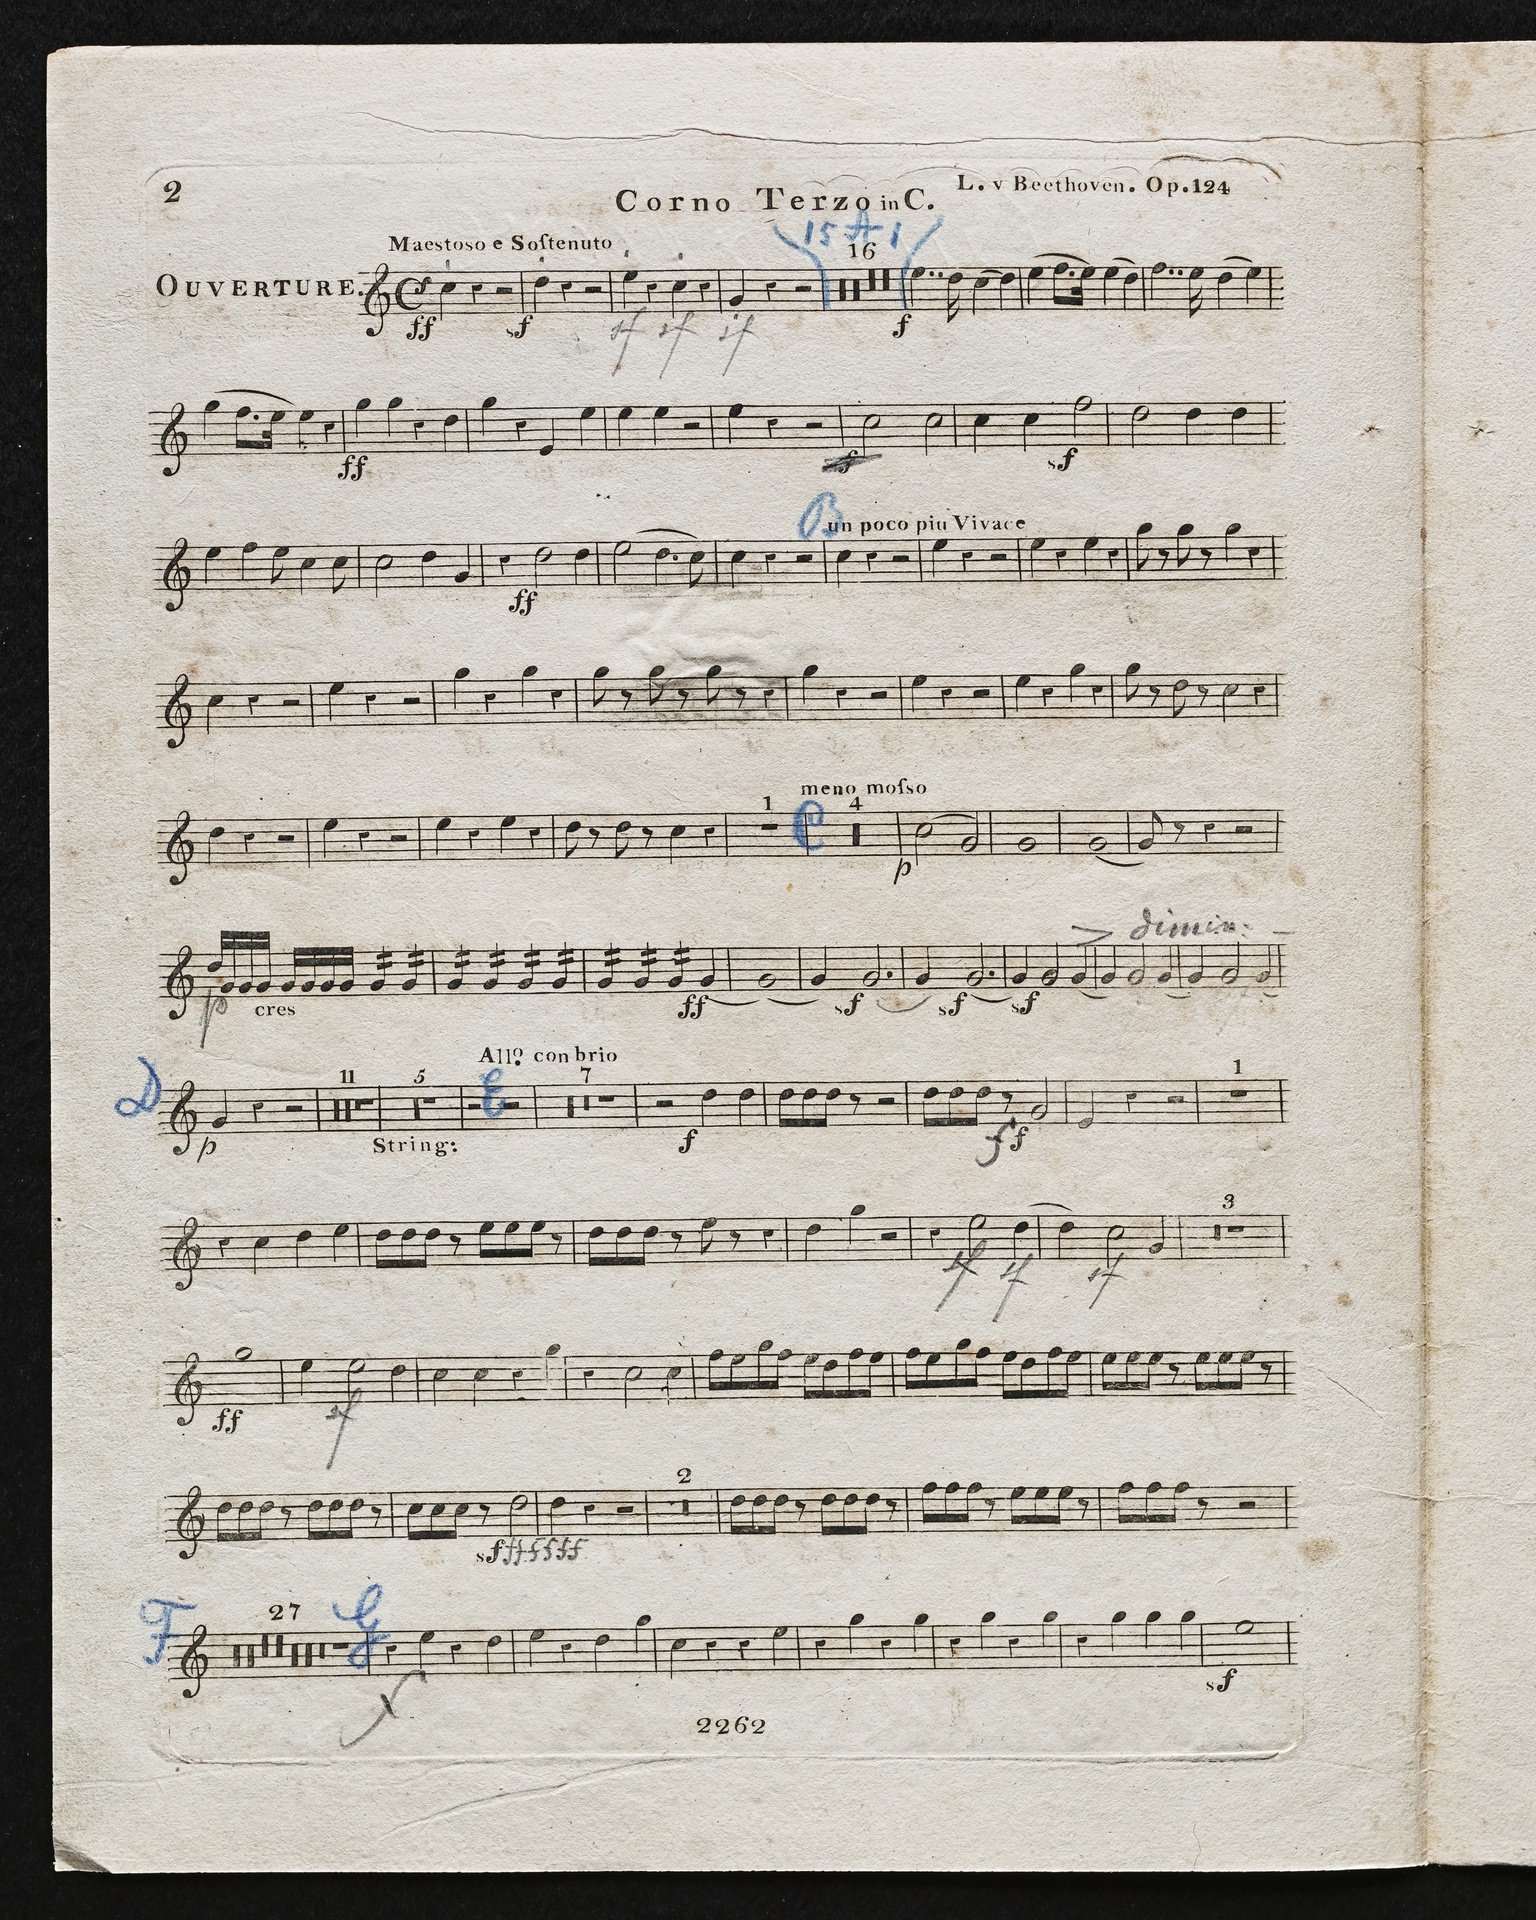 2
Corno Terzo in C.
L. v Beethoven. Op.124
15 A 1
Maestoso e Soſtenuto
16
OUVERTURE.
ff sf sf sf sf f
ff sf sf
B un poco piu Vivace
ff
meno moſso
1 C 4
p
> dimin:
p cres ff sf sf sf
Allo. con brio
D 11 5 E 7 1
p String: f ff
3
sf sf sf
ff sf
2
sf ffffff
F 27 G
sf
2262